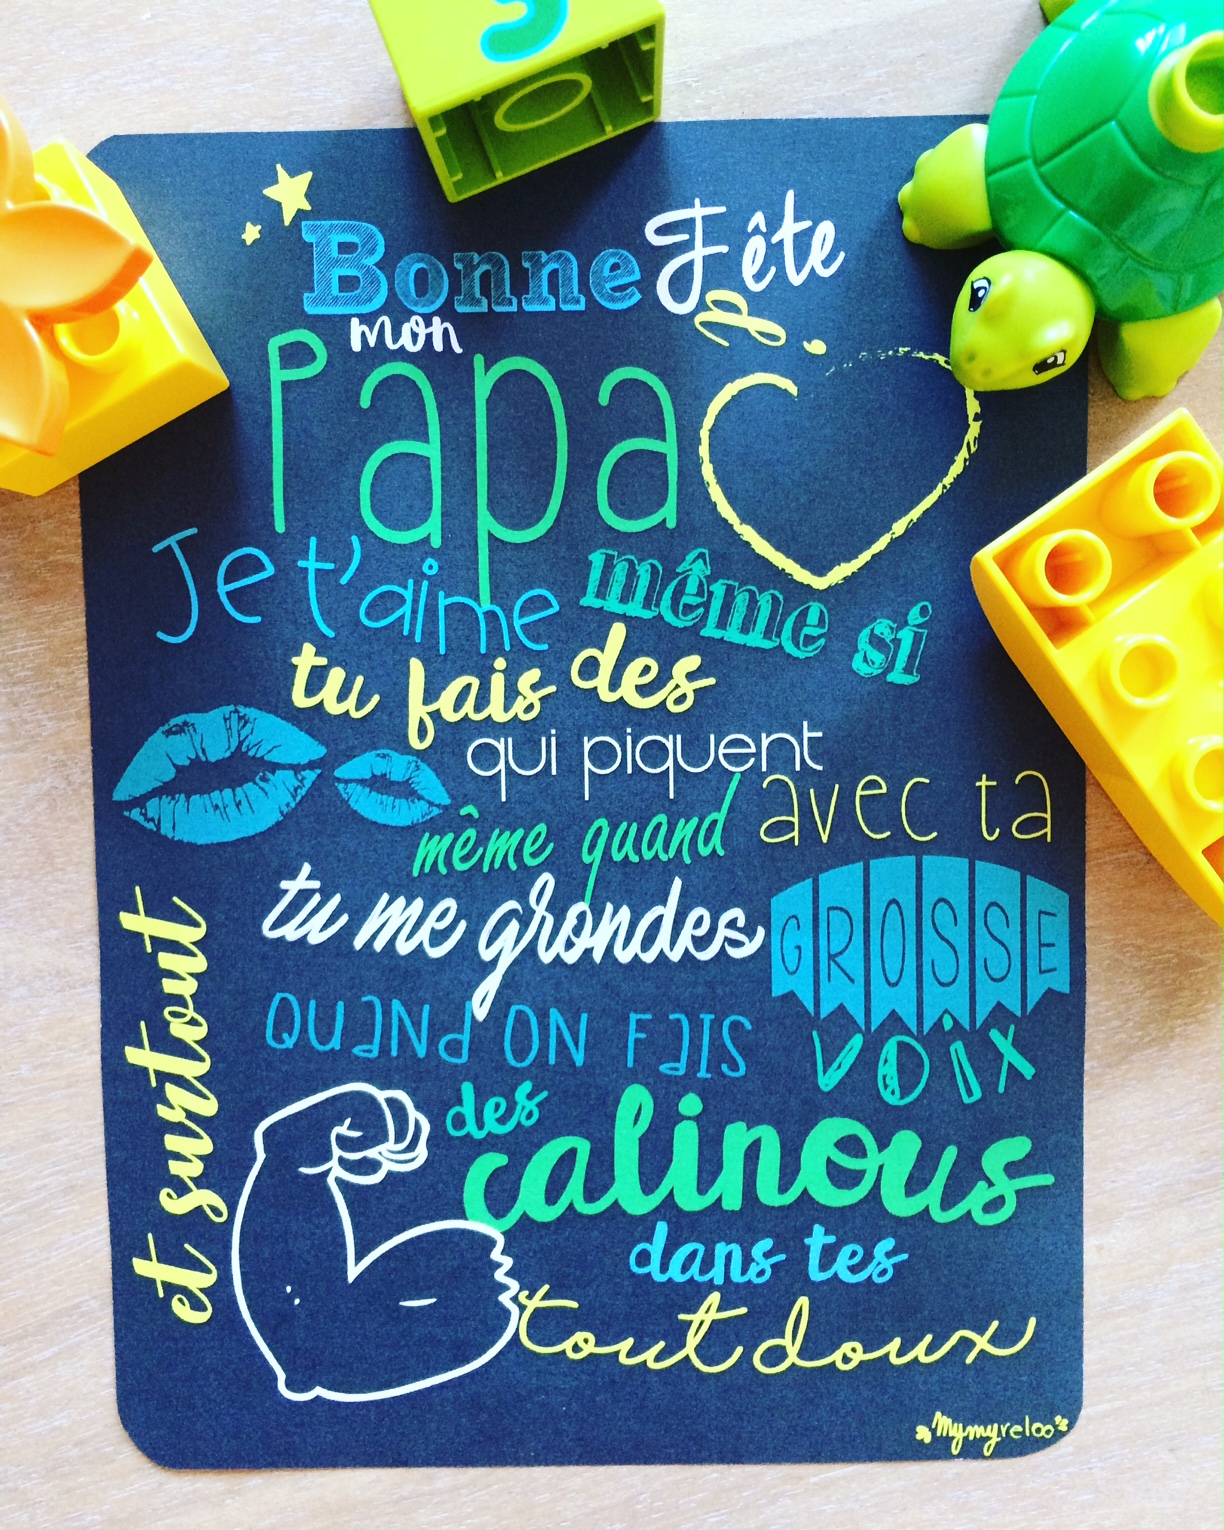 Bonne Fête
mon
Papa d'
Je t'aime même si
tu fais des
qui piquent
même quand avec ta
tu me grondes GROSSE
voix
et surtout
quand on fais
des
calinous
dans tes
tout doux
Mymyreloo